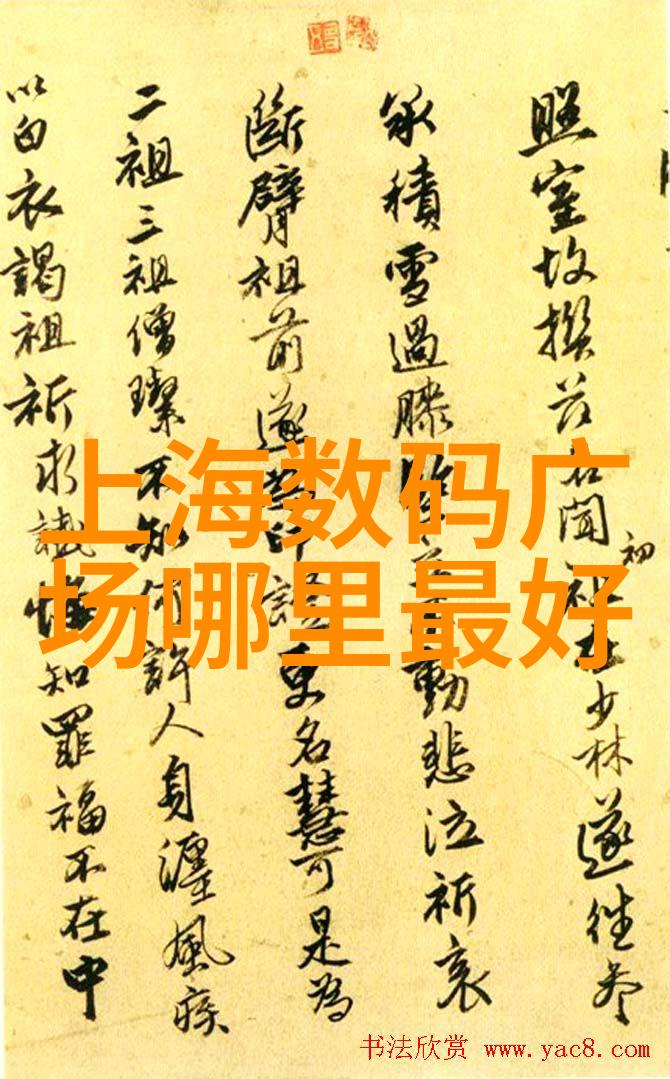 照室故撰
名聞初祖在少林遂往參
承積雪過膝
動悲泣祈哀
斷臂祖前遂
更名慧可是為
二祖三祖僧璨不知何許人身纏風疾
以白衣謁祖祈求懺悔知罪福不在中
上海数码广
场哪里最好
书法欣赏 www.yac8.com